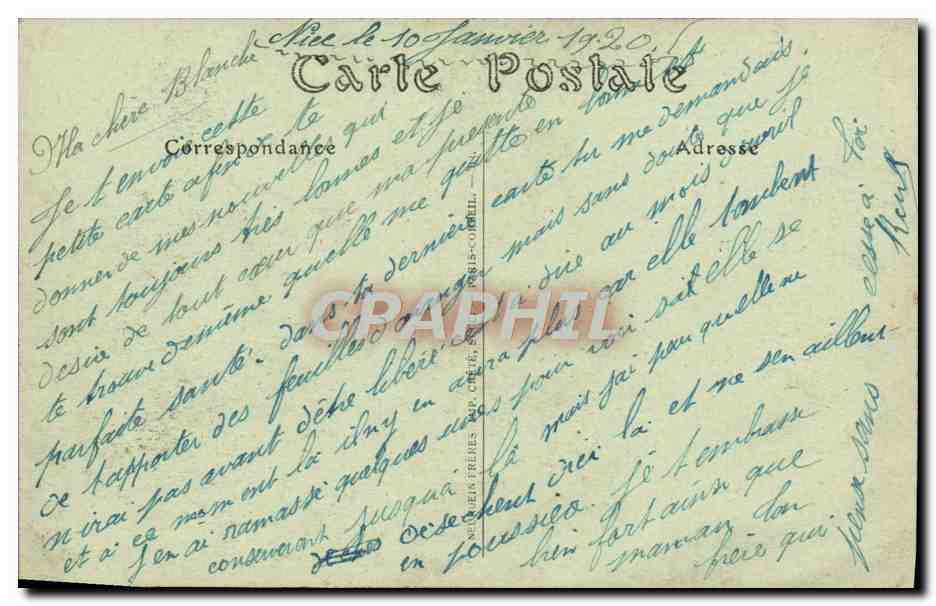 Nice le 10 Janvier 1920
Carte Postale
Correspondance
Adresse
Ma chère Blanche
Je t'envoie cette
petite carte afin de te
donner de mes nouvelles qui
sont toujours très bonnes et je
desire de tout cœur que ma presente
te trouve de même quelle me quitte en bonne et
parfaite santé. dans ta dernière carte tu me demandais
de t'apporter des feuilles d'oranger mais sans doute que je
n'irai pas avant d'être libéré c'est dire au mois d'avril
et à ce moment là il n'y en aura plus car elle tombent
J'en ai ramassé quelques unes pour voir si elle se
conserveront jusqua là mais j'ai peur quelle ne
desechent d'ici là et ne sen aillent
en poussière. je t'embrasse
bien fort ainsi que
maman ton
frère qui
pense sans cesse à toi
NEURDEIN FRÈRES IMP. CRÉTÉ, SUCC. PARIS-CORBEIL.
CRAPHIL